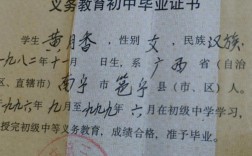 义务教育初中毕业证书
学生黄月香，性别女，民族汉族，
一九八二年十一月 日生，系广西省（自治
区、直辖市）南宁市邕宁县（市、区）人。
一九九六年九月至一九九九年六月在初级中学学习，
授完初级中等义务教育，成绩合格，准予毕业。